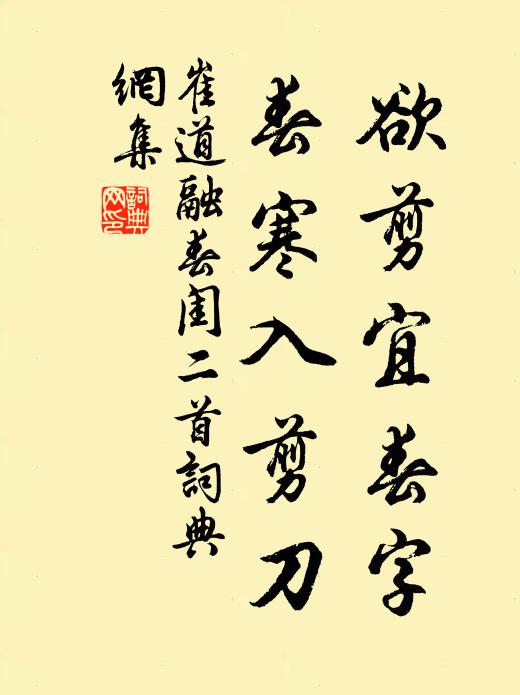 欲剪宜春字
春寒入剪刀
崔道融春闺二首詞典
網集
詞典
网印